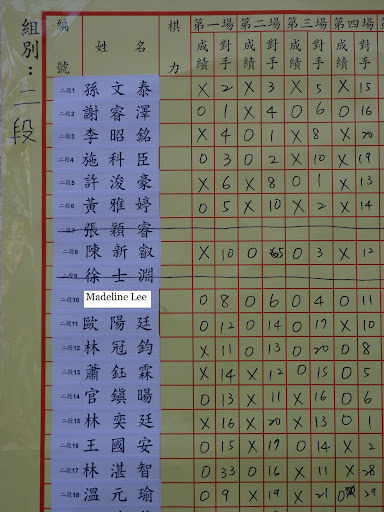 組別：二段
編號 姓名 棋力 第一場 第二場 第三場 第四場
成績 對手 成績 對手 成績 對手 成績 對手
二段1 孫文泰 X 2 X 3 X 5 X 15
二段2 謝睿澤 O 1 X 4 O 6 O 16
二段3 李昭銘 X 4 O 1 X 8 X 20
二段4 施科臣 O 3 O 2 X 10 X 19
二段5 許浚豪 X 6 X 8 O 1 X 13
二段6 黃雅婷 O 5 X 10 X 2 X 14
二段7 張穎睿
二段8 陳新叡 X 10 O 5 O 3 X 12
二段9 徐士淵
二段10 Madeline Lee O 8 O 6 O 4 O 11
二段11 歐陽廷 O 12 O 14 O 17 X 10
二段12 林冠鈞 X 11 O 13 O 20 O 8
二段13 蕭鈺霖 X 14 X 12 O 15 O 5
二段14 官鎮暘 O 13 X 11 X 16 O 6
二段15 林奕廷 X 16 X 20 X 13 O 1
二段16 王國安 O 15 X 17 O 14 X 2
二段17 林湛智 O 33 O 16 X 11 X 28
二段18 溫元瑜 O 9 X 19 X 21 29